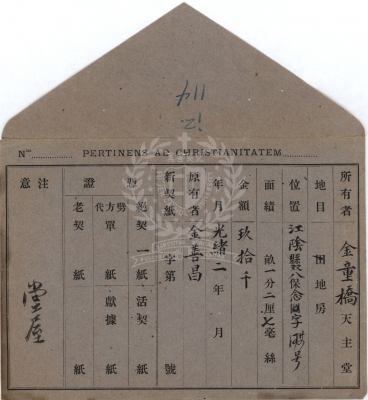 117
12
Nos. PERTINENS AD CHRISTIANITATEM
所有者 金童橋天主堂
地目 田地房
位置 江陰縣 八保念 字 號
面績 畝一分二厘七毫絲
金額 玖拾千
年月 光緒二年 月
原有者 金善昌
新契紙 字第 號
憑證
絕契一紙 活契 紙
勞方代單 獻據
老契 紙 紙
注意
堂屋